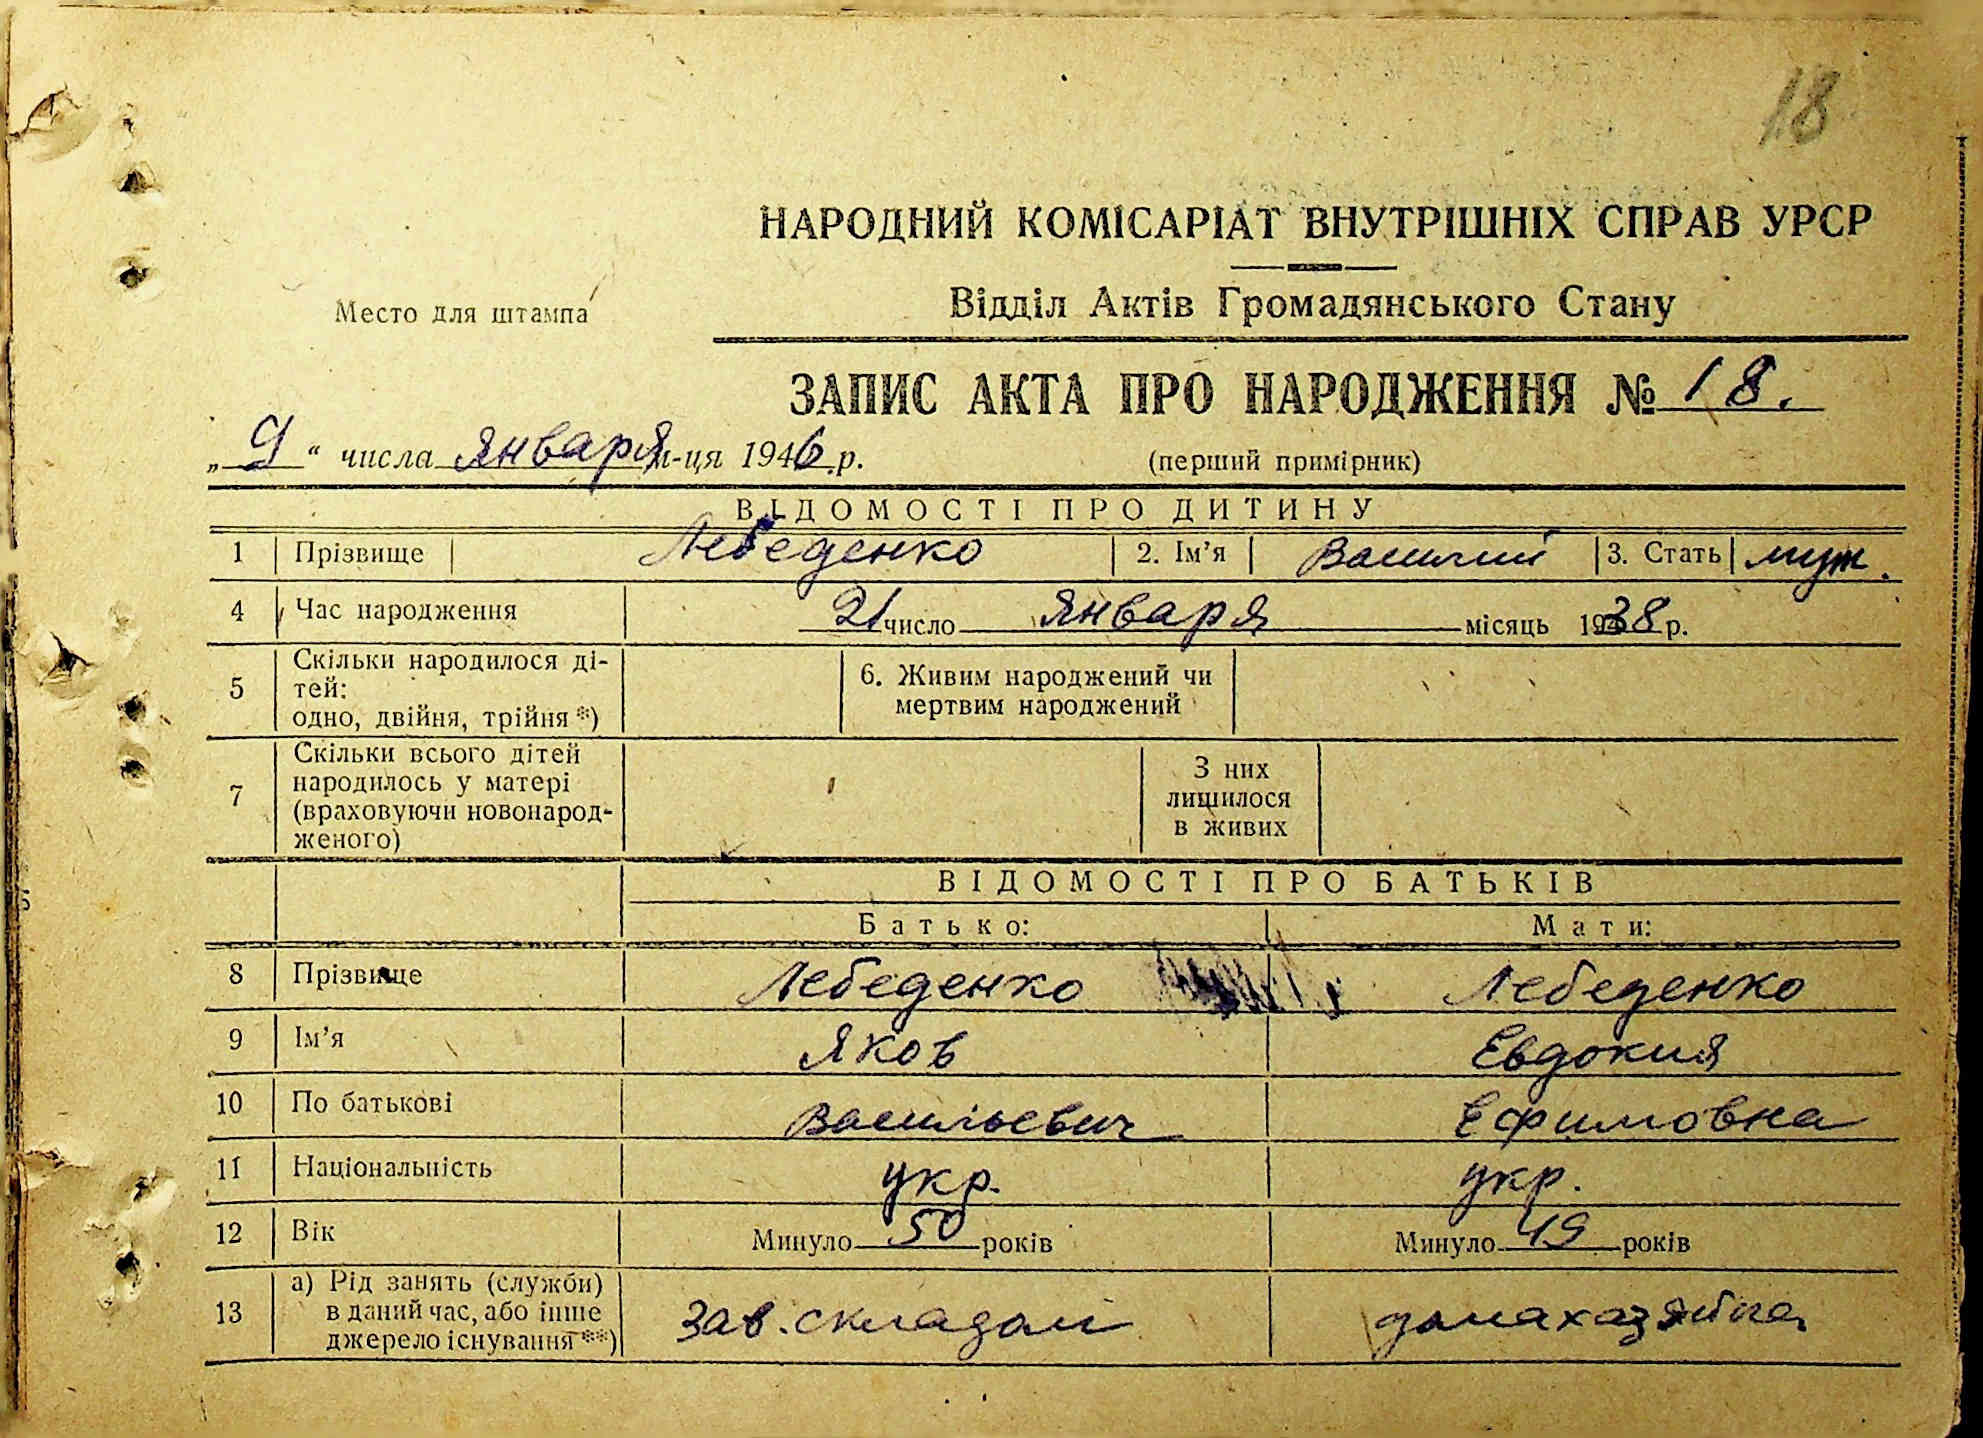 18
НАРОДНИЙ КОМІСАРІАТ ВНУТРІШНІХ СПРАВ УРСР
Место для штампа
Відділ Актів Громадянського Стану
ЗАПИС АКТА ПРО НАРОДЖЕННЯ № 18.
„ 9 “ числа Января м-ця 1946 р. (перший примірник)
ВІДОМОСТІ ПРО ДИТИНУ
1 Прізвище Лебеденко 2. Ім’я Василий 3. Стать муж.
4 Час народження 21 число Января місяць 1938 р.
5 Скільки народилося ді-
тей:
одно, двійня, трійня *)
6. Живим народжений чи
мертвим народжений
7 Скільки всього дітей
народилось у матері
(враховуючи новонарод-
женого)
З них
лишилося
в живих
ВІДОМОСТІ ПРО БАТЬКІВ
Батько: Мати:
8 Прізвище Лебеденко Лебеденко
9 Ім’я Яков Евдокия
10 По батькові Васильевич Ефимовна
11 Національність укр. укр.
12 Вік Минуло 50 років Минуло 49 років
13 а) Рід занять (служби)
в даний час, або інше
джерело існування **)
Зав. складом домахазяйка